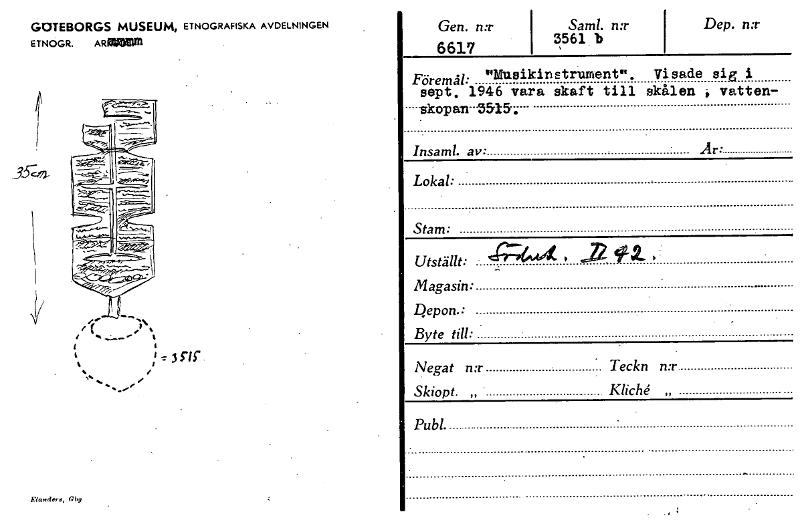 GÖTEBORGS MUSEUM, ETNOGRAFISKA AVDELNINGEN
ETNOGR.
35cm
= 3515
Elanders, Gbg
Gen. n:r Saml. n:r Dep. n:r
6617 3561 b
Föremål: "Musikinstrument". Visade sig i
sept. 1946 vara skaft till skålen , vatten-
skopan 3515.
Insaml. av: År:
Lokal:
Stam:
Utställt: II 42.
Magasin:
Depon.:
Byte till:
Negat n:r Teckn n:r
Skiopt. „ Kliché „
Publ.